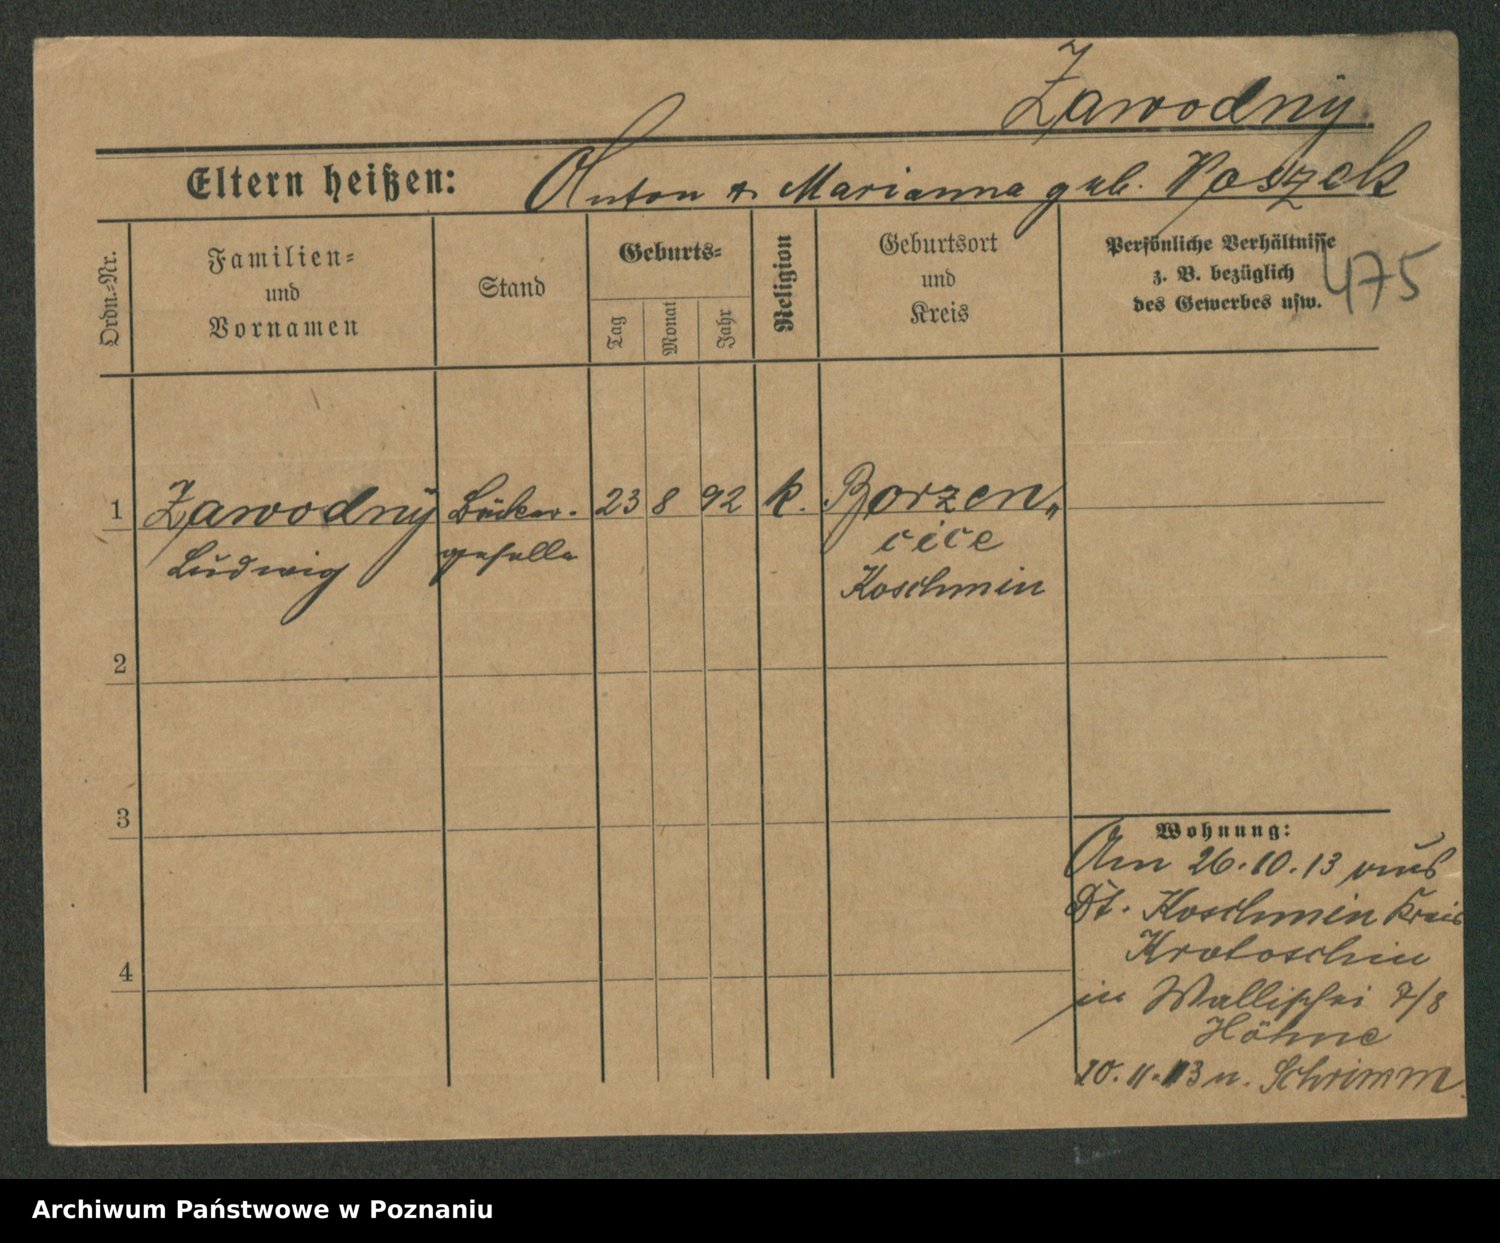 Zawodny
Eltern heißen: Anton & Marianna geb. Woszek
Ordn.-Nr.
Familien-
und
Vornamen
Stand
Geburts-
Tag
Monat
Jahr
Religion
Geburtsort
und
Kreis
Persönliche Verhältnisse
z. B. bezüglich
des Gewerbes usw.
475
1 Zawodny Bäcker- 23 8 92 k. Borzen„
Ludwig geselle cice
Koschmin
2
3
Wohnung:
Am 26.10.13 aus
Dt. Koschmin Kreis
Krotoschin
4
in Wallischei 7/8
Höhne
20.11.13 n. Schrimm
Archiwum Państwowe w Poznaniu